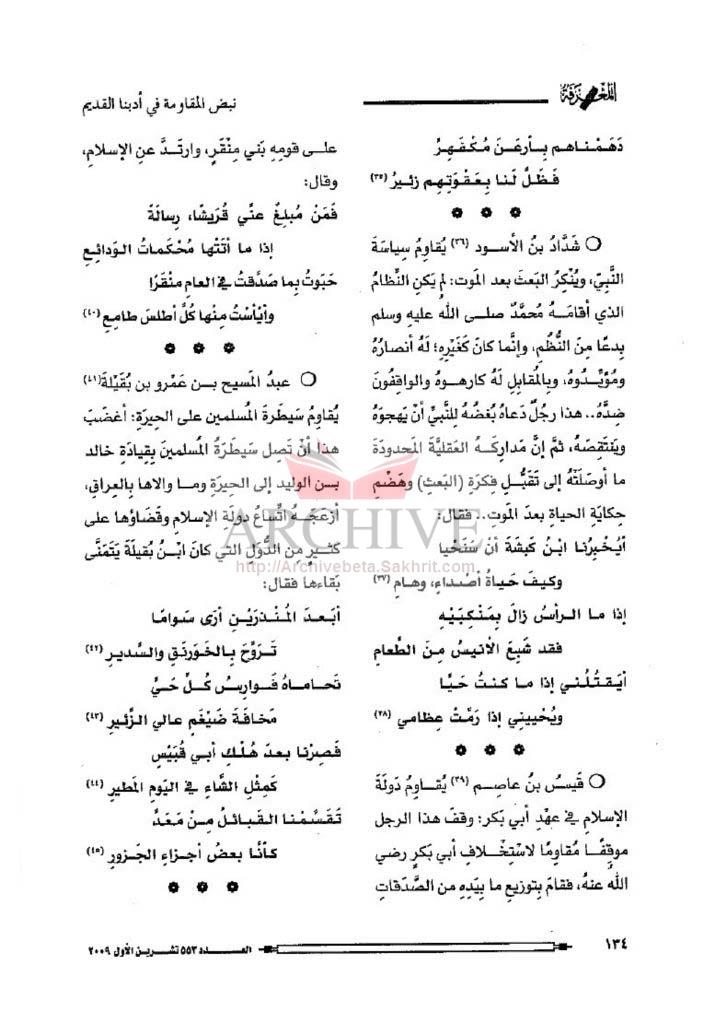 المعرفة
نبض المقاومة في أدبنا القديم
دَهَمْـنـاهـم بـأرعَـنَ مُـكْـفَـهِـرٍّ
فَـظَـلَّ لـنـا بـعَـقْـوَتِـهِـم زئـيـرُ (٣٥)
❁ ❁ ❁
○ شَدَّادُ بنُ الأسود (٣٦) يُقاومُ سياسةَ
النَّبيِّ، ويُنْكِرُ البَعثَ بعد الموت: لم يكنِ النِّظامُ
الذي أقامَـهُ مُحمَّدٌ صلـى اللهُ عليهِ وسلم
بِدعًا مِنَ النُّظُمِ، وإنَّما كانَ كغَيْرِهِ؛ لَهُ أنصارُهُ
ومُؤَيِّدُوهُ، وبالمُقابلِ لَهُ كارهـوهُ والواقِفُونَ
ضِدَّهُ.. هذا رجلٌ دَعاهُ بُغضُهُ للنَّبيِّ أنْ يَهجوَهُ
ويَنتقِصَهُ، ثمَّ إنَّ مَداركَـهُ العَقليَّةَ المَحدودَةَ
ما أوصَلَتْهُ إلى تَقَبُّـلِ فِكرَةِ (البَعثِ) وهَضْمِ
حِكايَةِ الحياةِ بعدَ الموتِ.. فقالَ:
أيُخْبِرُنا ابْنُ كَبشَةَ أنْ سَنَحْيا
وكيفَ حَيـاةُ أصْـداءٍ، وهـامِ (٣٧)
إذا ما الـرأسُ زالَ بِمَنْكِبَيْهِ
فقد شَبِعَ الأنيسُ مـنَ الطَّعامِ
أيَـقـتُـلُـنـي إذا مـا كـنـتُ حَـيًّـا
ويُحْيِيني إذا رَمَّتْ عِظامي (٣٨)
❁ ❁ ❁
○ قَيسُ بنُ عاصِم (٣٩) يُقـاومُ دَولَةَ
الإسلامِ في عَهْدِ أبي بَكر: وقفَ هذا الرجل
موقِفًـا مُقاومًا لاسْتِخْـلافِ أبي بَكرٍ رضي
اللهُ عنهُ، فقامَ بتَوزيعِ ما بيَدِهِ من الصَّدَقاتِ
علـى قومِهِ بَني مِنْقَرٍ، وارتَدَّ عن الإسلامِ،
وقالَ:
فَمَنْ مُبلِغٌ عنِّي قُرَيشًا، رِسالَةً
إذا ما أتَتْها مُحْكَماتُ الوَدائعِ
حَبَوتُ بِما صَدَّقتُ في العامِ مِنْقَرًا
وأيْأسْتُ مِنْها كُلَّ أطلسَ طامعِ (٤٠)
❁ ❁ ❁
○ عبدُ المسيح بـن عَمْرو بن بُقَيْلَة (٤١)
يُقاوِمُ سَيطَرةَ المُسلمين على الحِيرَة: أغضَبَ
هـذا أنْ تَصِلَ سَيطَرَةُ المُسلمينَ بقِيادَةِ خالد
بـن الوليد إلى الحِيرَةِ ومـا والاها بالعِراقِ،
أزعَجَـهُ اتِّساعُ دولَةِ الإسلامِ وقَضاؤها على
كثيرٍ مِن الدُّوَلِ التي كان ابْنُ بُقَيلَةَ يَتَمَنَّى
بَقاءَها فقالَ:
أبَـعـدَ المُـنـذرَيْـنِ أرَى سَـوامًـا
تَـرَوَّحَ بـالخَـوَرنَـقِ والسَّدير (٤٢)
تَحـامـاهُ فَـوارِسُ كُـلِّ حَـيٍّ
مَخافَةَ ضَيْغَمٍ عالي الزَّئيرِ (٤٣)
فَـصِـرْنـا بـعـدَ هُـلْـكِ أبـي قُبَيْسٍ
كَمِثْلِ الشَّاءِ في اليَومِ المَطيرِ (٤٤)
تَـقَـسَّـمُـنـا القَـبـائـلُ مِـنْ مَـعَـدٍّ
كأنَّا بعضُ أجـزاءِ الجَـزورِ (٤٥)
❁ ❁ ❁
ARCHIVE
http://Archivebeta.Sakhrit.com
١٣٤
العـــدد ٥٥٣ تشريـن الأول ٢٠٠٩